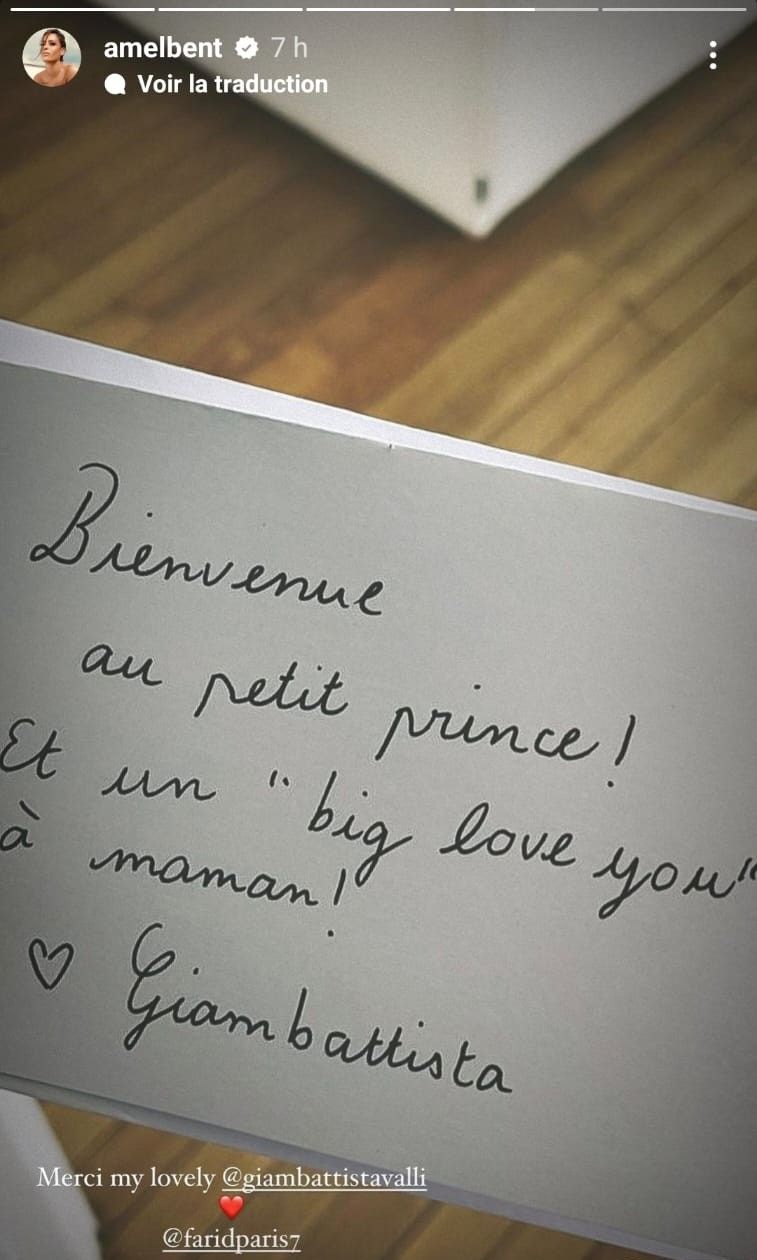 amelbent 7 h
Voir la traduction
Bienvenue
au petit prince !
Et un " big love you"
à maman !
♡ Giambattista
Merci my lovely @giambattistavalli
❤️
@faridparis7